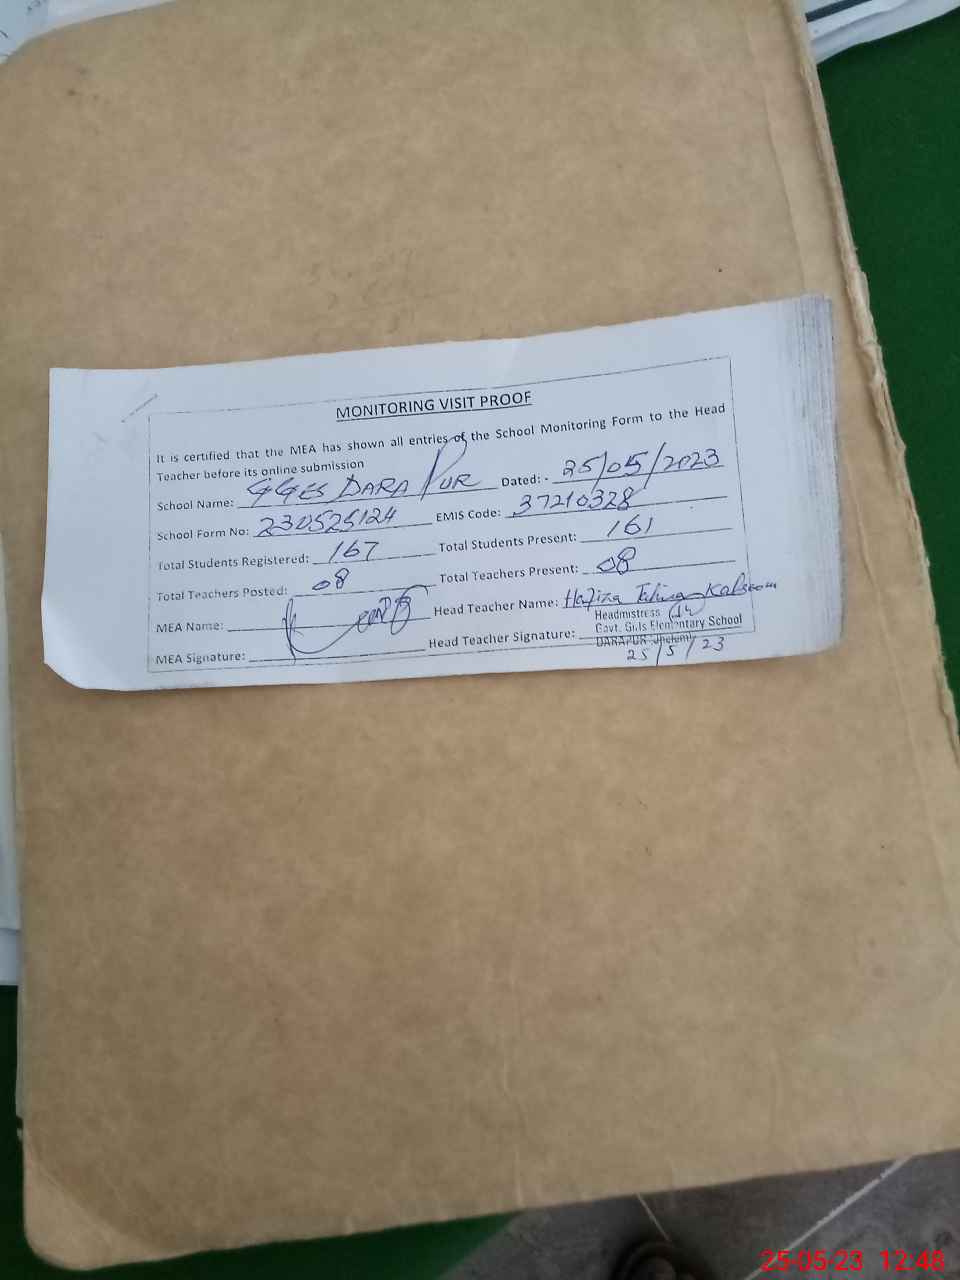 MONITORING VISIT PROOF
It is certified that the MEA has shown all entries of the School Monitoring Form to the Head
Teacher before its online submission
School Name: GGES DARA PUR Dated: 25/05/2023
School Form No: 230525124 EMIS Code: 37210328
Total Students Registered: 167 Total Students Present: 161
Total Teachers Posted: 08 Total Teachers Present: 08
MEA Name: Head Teacher Name: Hafiza Tahira Kalsoom
Headmistress
Govt. Girls Elementary School
MEA Signature: Head Teacher Signature: DARAPUR (Jhelum)
25/5/23
25-05-23 12:48